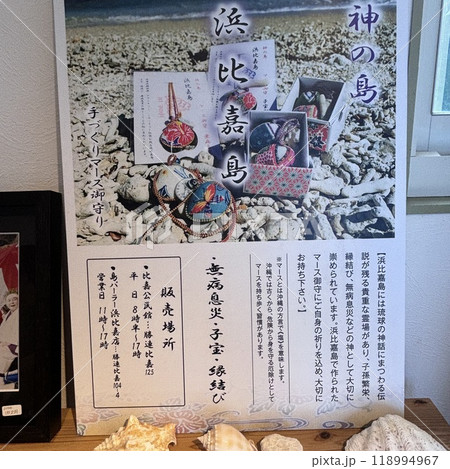 神の島
浜比嘉島
手づくりマース御守り
【浜比嘉島には琉球の神話にまつわる伝
説が残る貴重な霊場があり、子孫繁栄、
縁結び、無病息災などの神として大切に
崇められています。浜比嘉島で作られた
マース御守にご自身の祈りを込め、大切に
お持ち下さい。】
※マースとは沖縄の方言で(塩)を意味します。
沖縄では古くから、危険から身を守る厄除けとして
マースを持ち歩く習慣があります。
・無病息災・子宝・縁結び
販売場所
・比嘉公民館…勝連比嘉125
平日 8時半〜17時
・島パーラー浜比嘉店…勝連比嘉304-4
営業日 11時〜17時
浜比嘉島
浜比嘉島
PIXTA
pixta.jp - 118994967